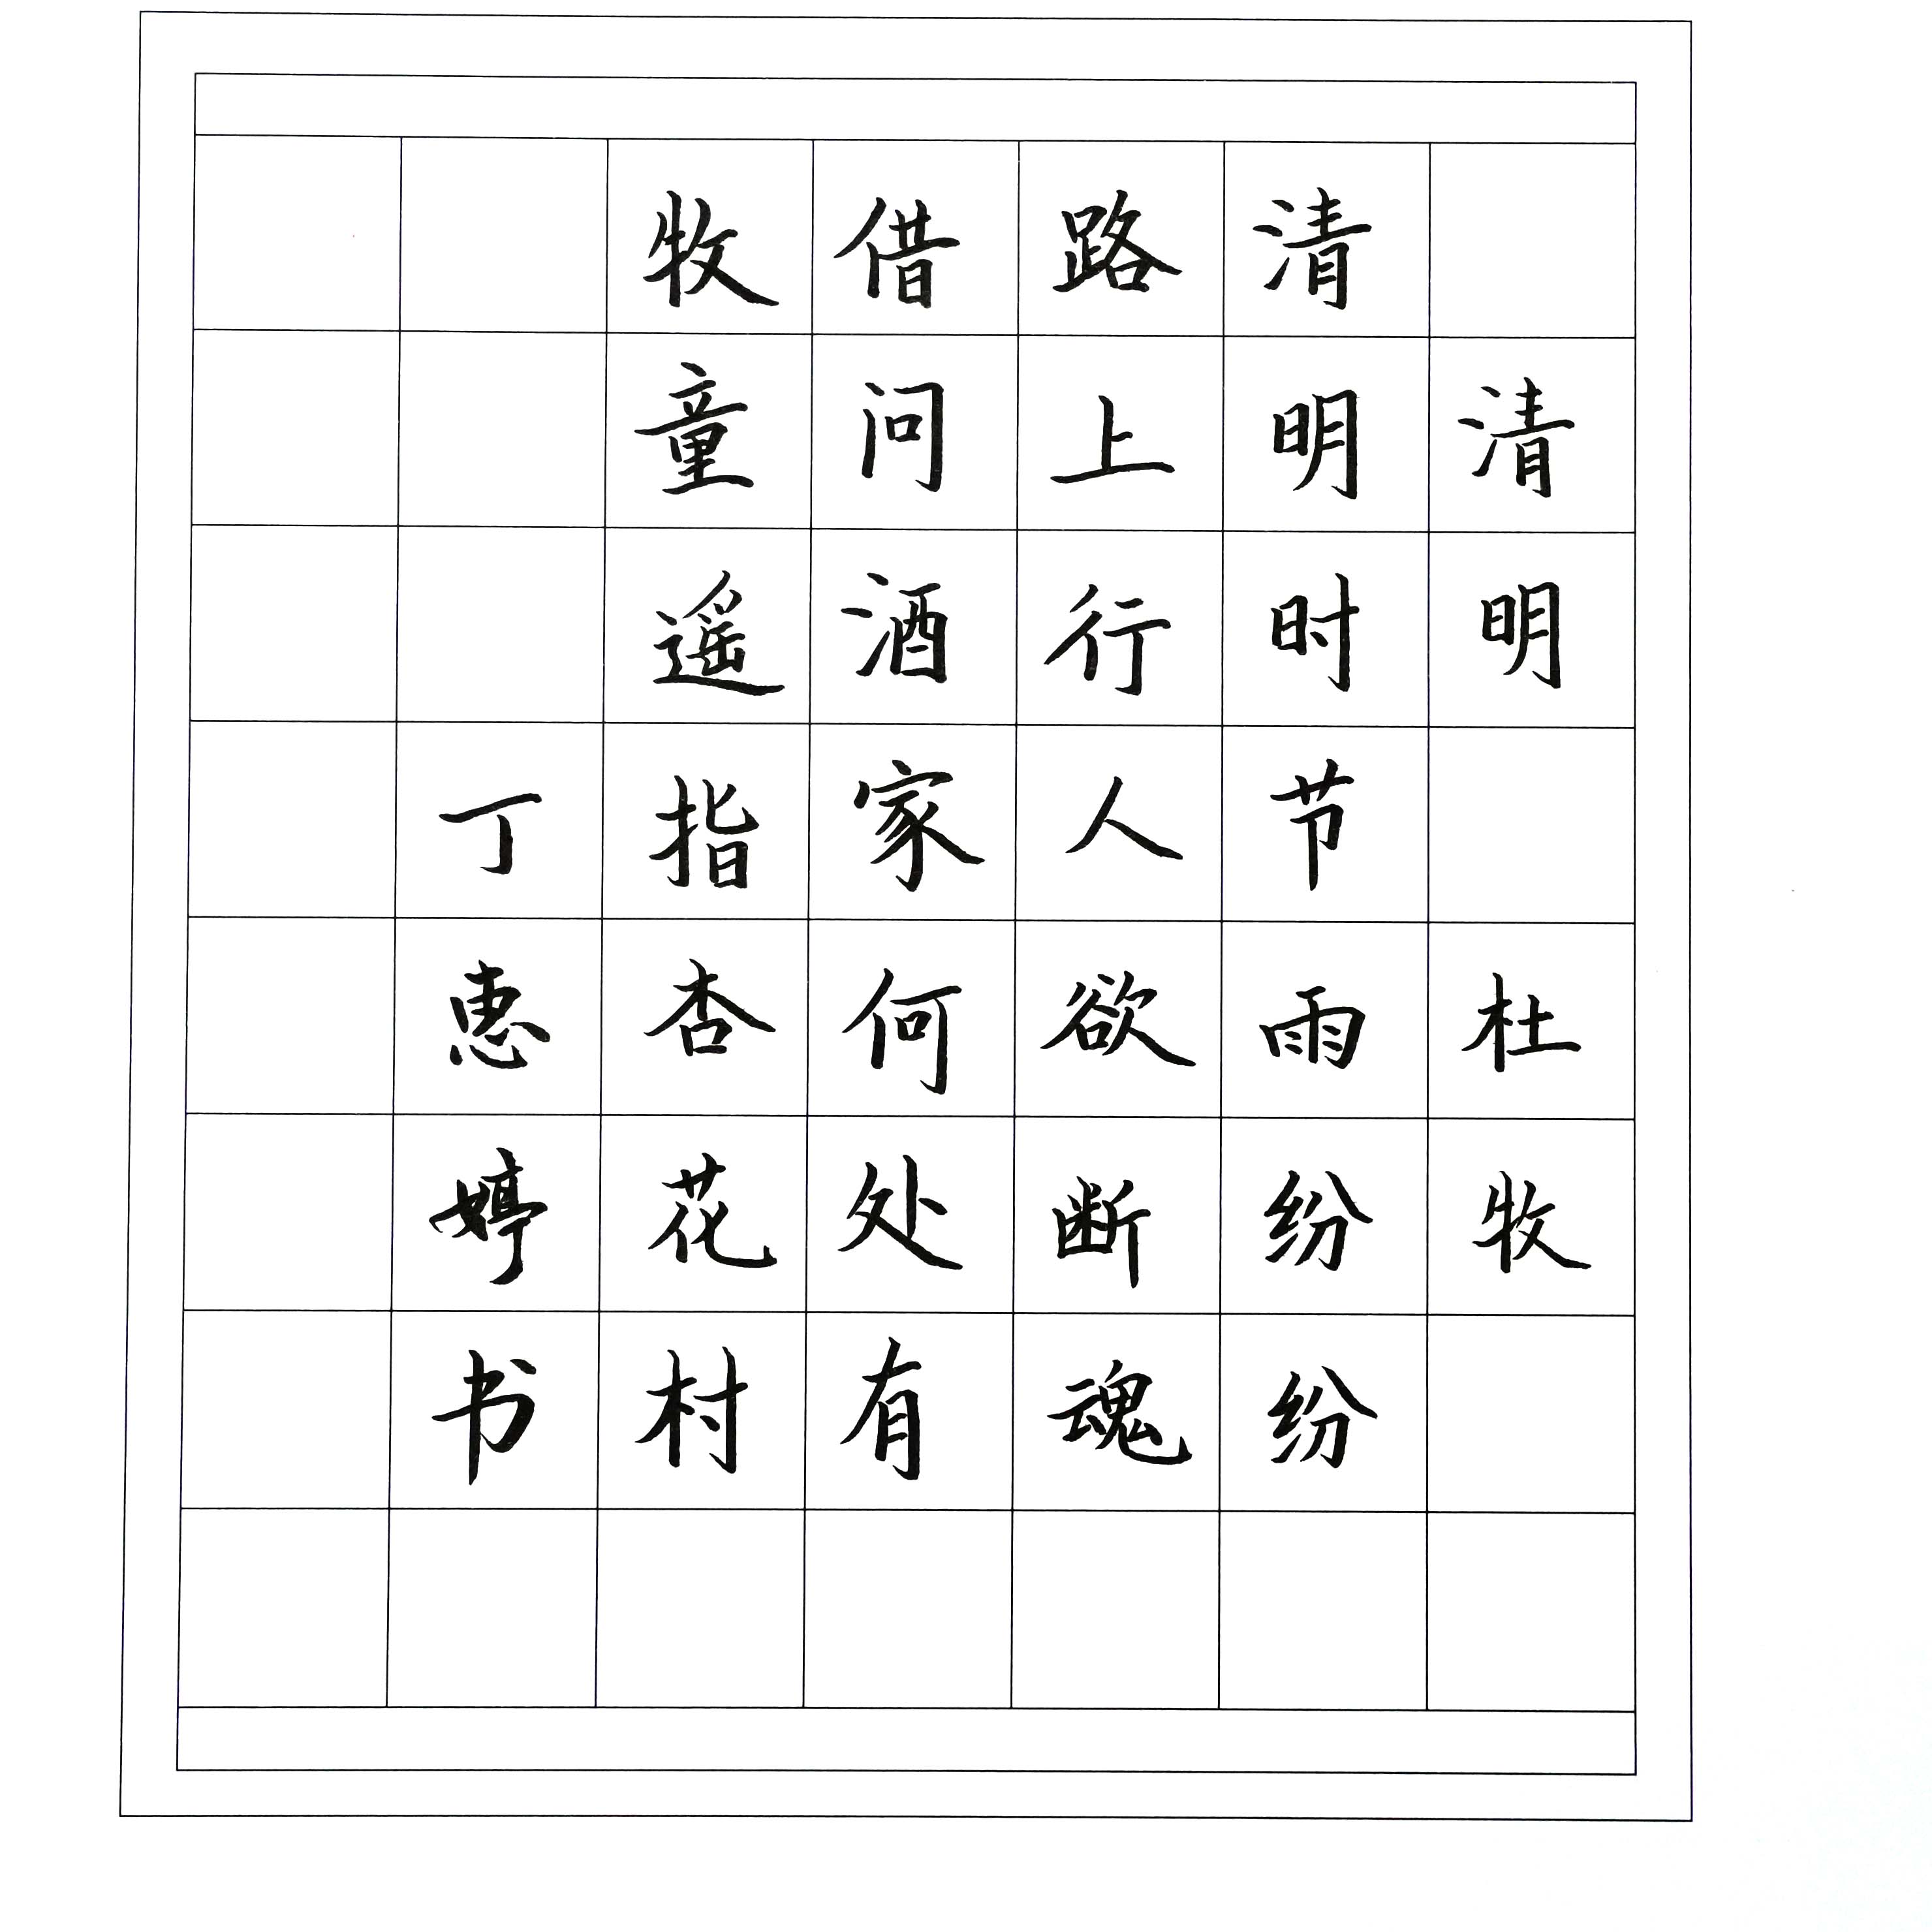 清明 杜牧
清明时节雨纷纷
路上行人欲断魂
借问酒家何处有
牧童遥指杏花村
丁惠婷书